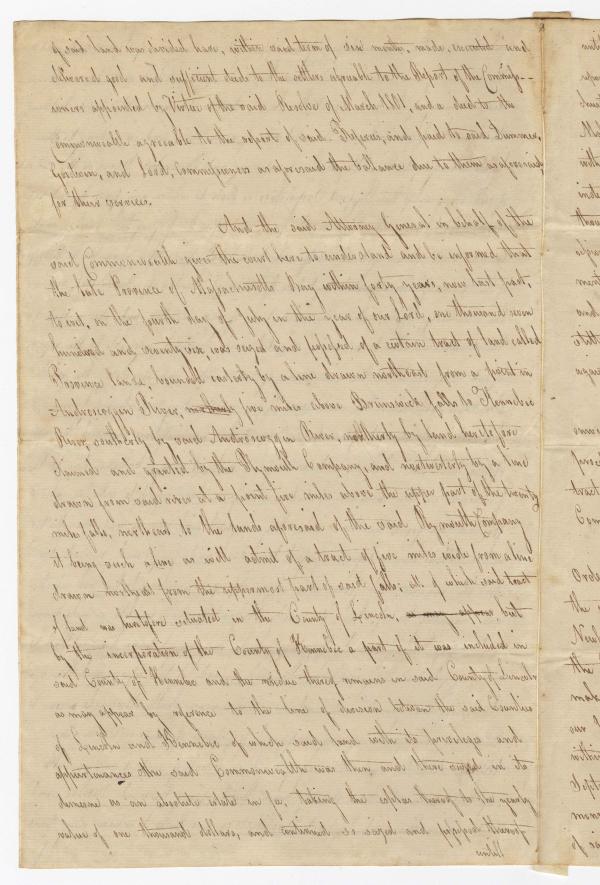 of said land was divided have, within said term of six months, made, executed and
delivered good and sufficient deeds to the settlers agreable to the Report of the Commiss-
ioners appointed by Virtue of the said Resolve of March 1801, and a deed to the
Commonwealth agreable to the report of said Referees; and paid to said Dummer,
Goodwin, and Lord, Commissioners as aforesaid the ballance due to them as aforesaid
for their services.
And the said Attorney General in behalf of the
said Commonwealth gives the court here to understand and be informed that
the late Province of Massachusetts Bay within forty years, now last past,
to wit, on the fourth day of July in the year of our Lord, one thousand seven
hundred and seventy six was seized and possessed of a certain tract of land called
Province lands, bounded easterly by a line drawn northeast from a point in
Androscoggin River, five miles above Brunswick falls to Kennebec
River, southerly by said Androscoggin River, northerly by land heretofore
claimed and granted by the Plymouth Company, and northwesterly by a line
drawn from said river at a point five miles above the upper part of the twenty
miles falls, northeast, to the lands aforesaid of the said Plymouth Company
it being such a line as will admit of a tract of five miles wide from a line
drawn northeast from the uppermost part of said falls; all of which said tract
of land was heretofore situated in the County of Lincoln, as may appear but
by the incorporation of the County of Kennebec a part of it was included in
said County of Kennebec and the residue thereof remains in said County of Lincoln
as may appear by reference to the line of division between the said Counties
of Lincoln and Kennebec of which said land with its privileges and
appurtenances the said Commonwealth was then and there seized in its
demesne as an absolute estate in fee, taking the esplees thereof to the yearly
value of one thousand dollars, and continued so seized and possessed thereof
untill